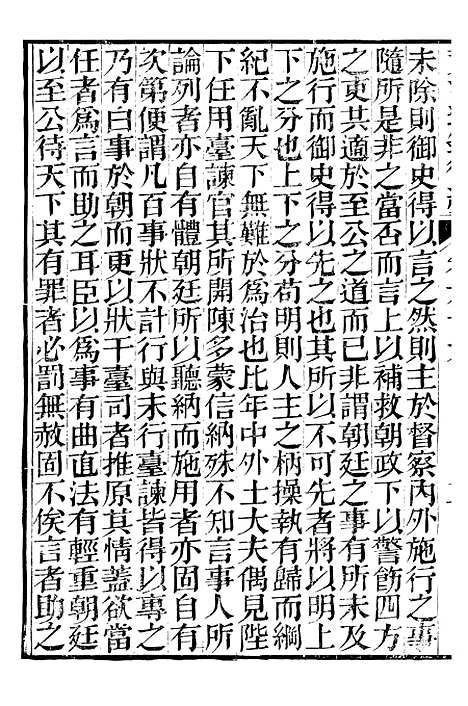 未除則御史得以言之然則主於督察內外施行之事
隨所是非之當否而言上以補救朝政下以警飭四方
之吏其適於至公之道而已非謂朝廷之事有所未及
施行而御史得以先之也其所以不可先者將以明上
下之分也上下之分苟明則人主之柄操執有歸而綱
紀不亂天下無難於為治也比年中外士大夫偶見陛
下任用臺諫官其所開陳多蒙信納殊不知言事人所
論列者亦自有體朝廷所以聽納而施用者亦固自有
次第便謂凡百事狀不計行與未行臺諫皆得以專之
乃有曰事於朝而更以狀干臺司者推原其情蓋欲當
任者為言而助之耳臣以為事有曲直法有輕重朝廷
以至公待天下其有罪者必罰無赦固不俟言者助之